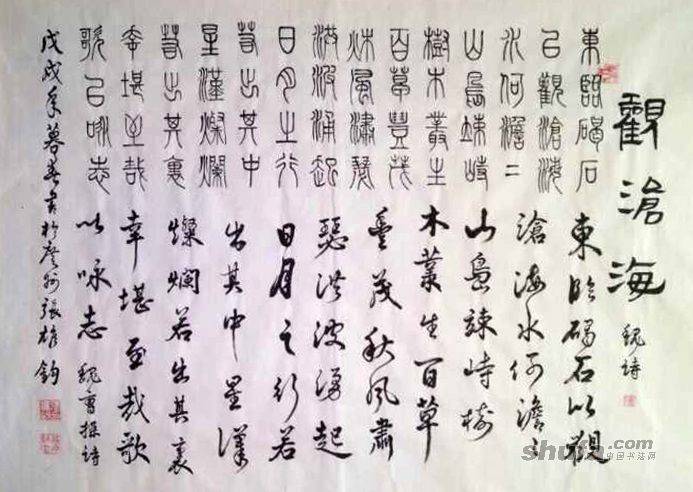 觀滄海
魏詩
東臨碣石
以觀滄海
水何澹二
山島竦峙
樹木叢生
百草豐茂
秌風瀟瑟
洪波涌起
日月之行
若出其中
星漢燦爛
若出其裏
幸堪至哉
歌以咏志
東臨碣石以觀
滄海水何澹
山島竦峙樹
木叢生百草
豐茂秋風肅
瑟洪波湧起
日月之行若
出其中星漢
燦爛若出其裏
幸堪至哉歌
以咏志 魏曹操詩
戊戌年暮春書於廣州張雄鈞
shufa.com
中国书法网